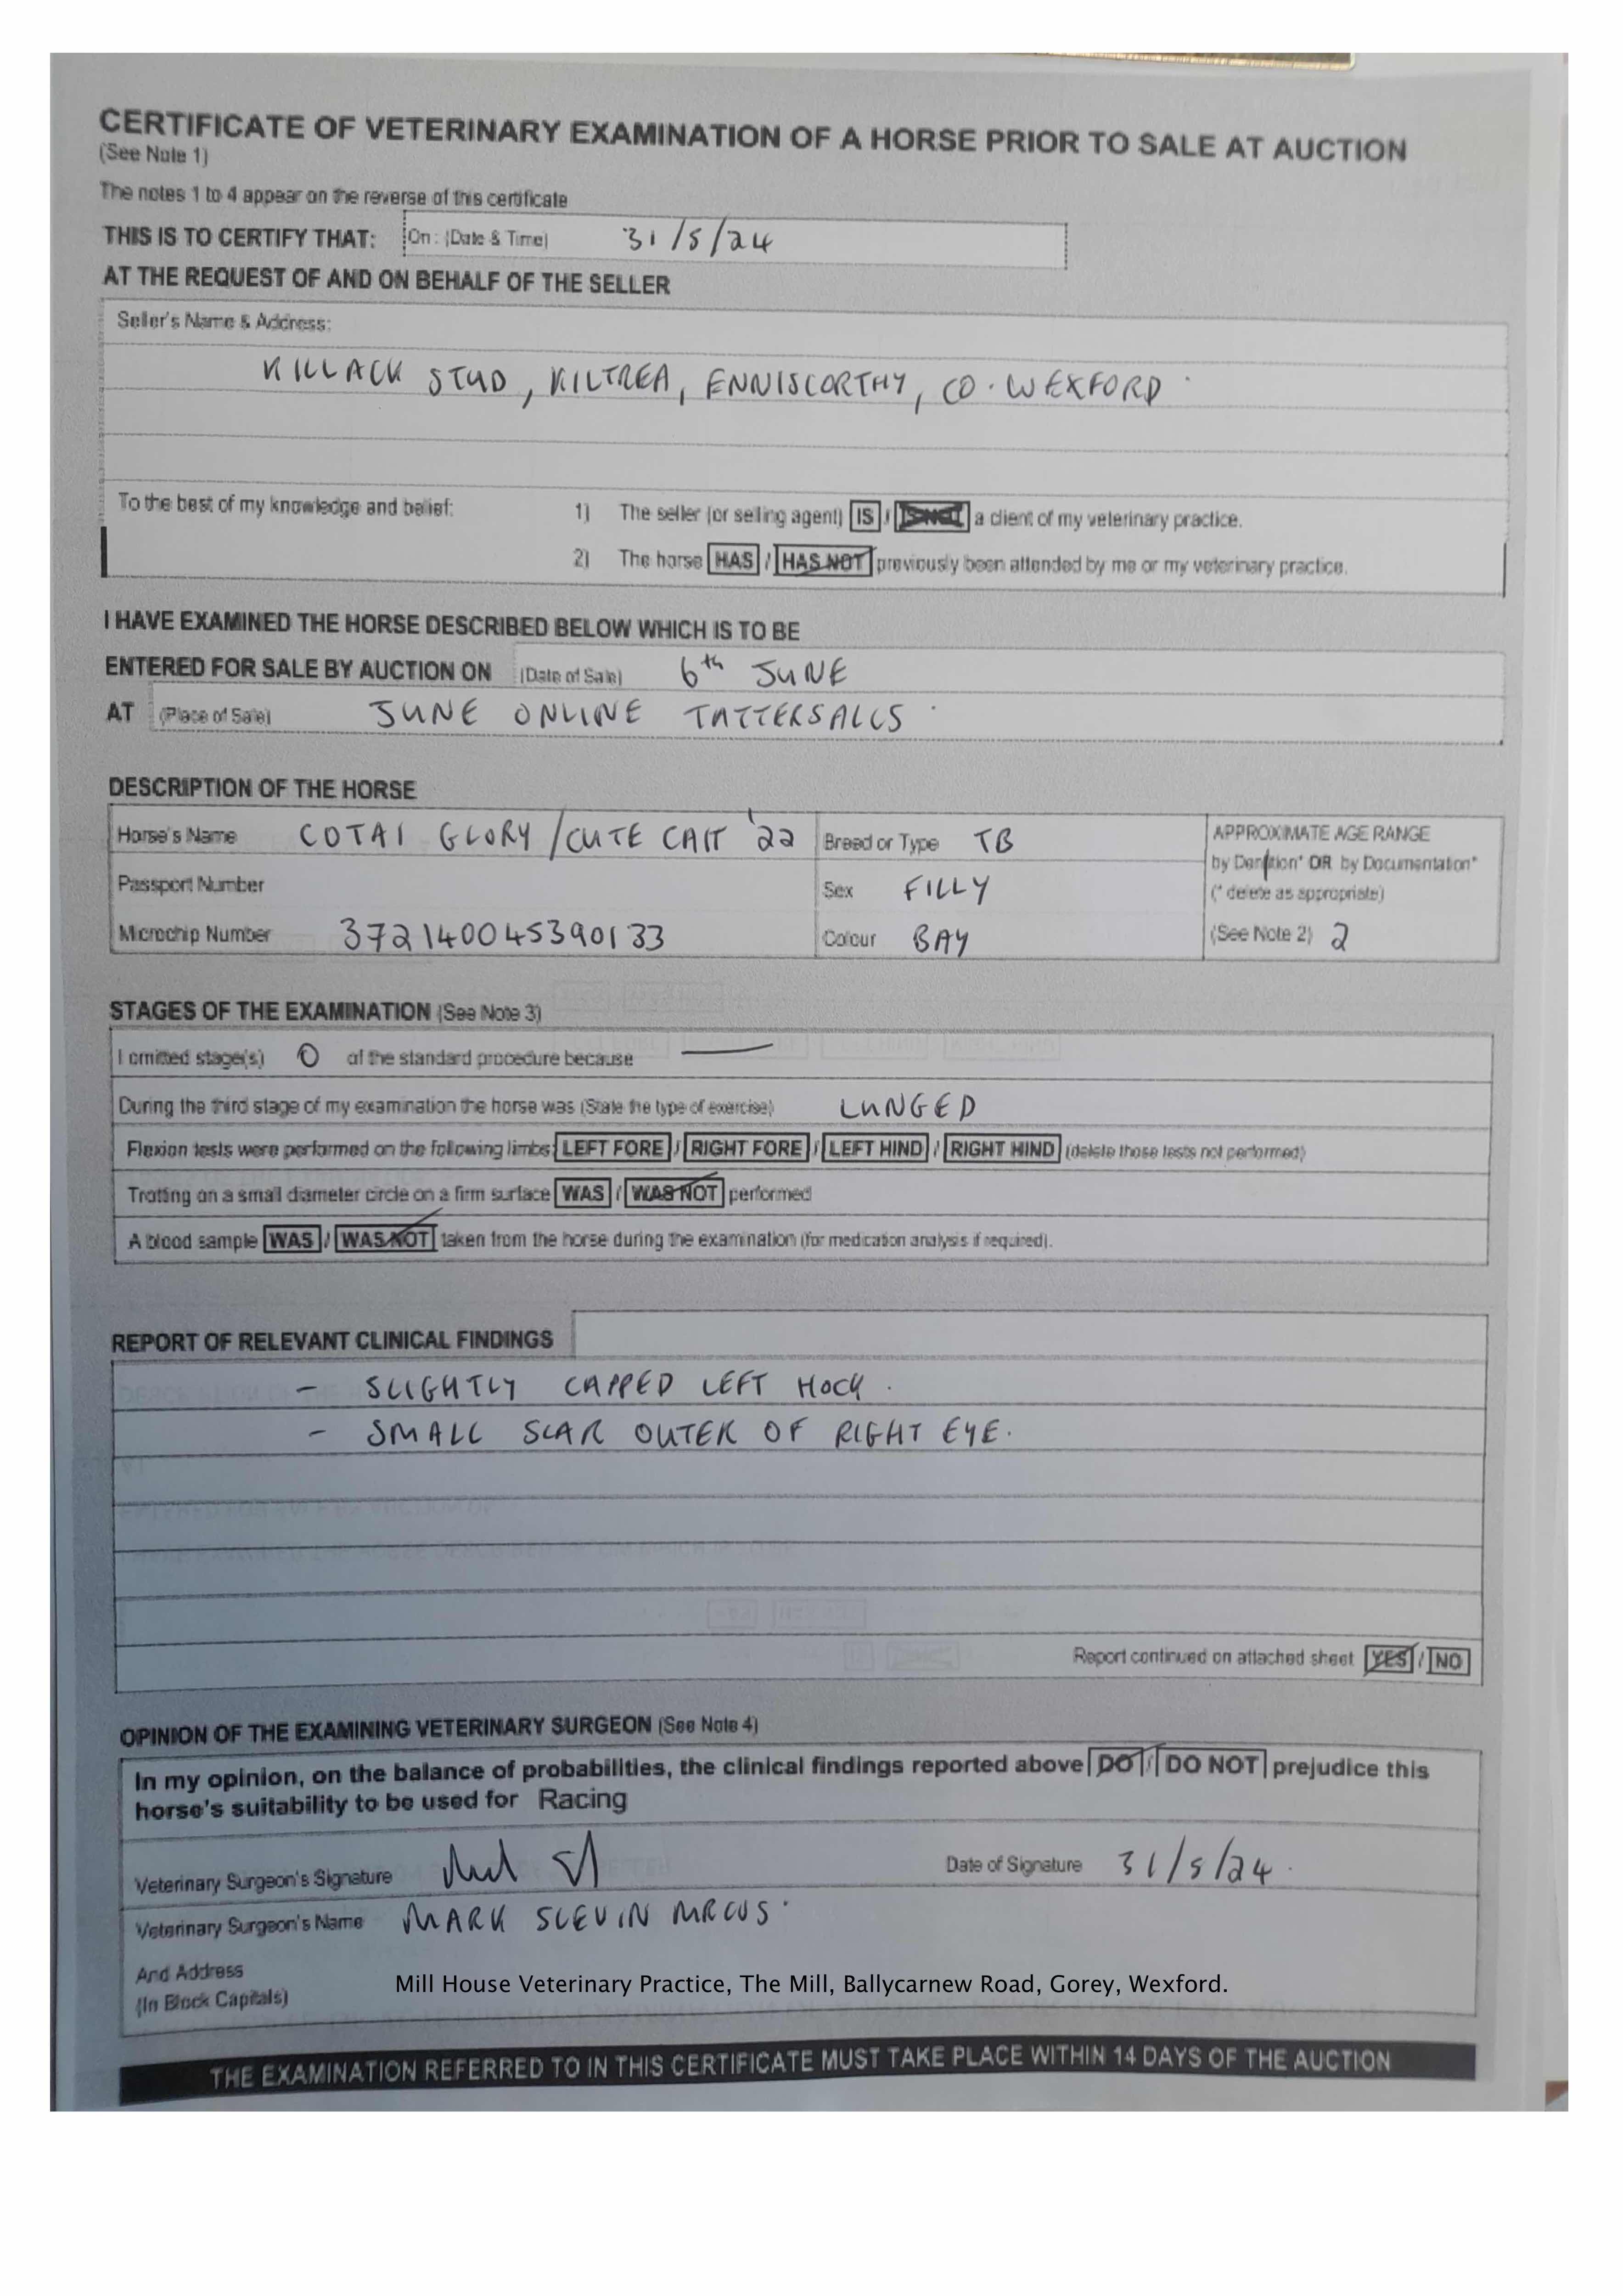 CERTIFICATE OF VETERINARY EXAMINATION OF A HORSE PRIOR TO SALE AT AUCTION
(See Note 1)
The notes 1 to 4 appear on the reverse of this certificate
THIS IS TO CERTIFY THAT: On: (Date & Time) 31/5/24
AT THE REQUEST OF AND ON BEHALF OF THE SELLER
Seller's Name & Address:
KILLACK STUD, KILTREA, ENNISCORTHY, CO. WEXFORD
To the best of my knowledge and belief: 1) The seller (or selling agent) IS / IS NOT a client of my veterinary practice.
2) The horse HAS / HAS NOT previously been attended by me or my veterinary practice.
I HAVE EXAMINED THE HORSE DESCRIBED BELOW WHICH IS TO BE
ENTERED FOR SALE BY AUCTION ON (Date of Sale) 6th JUNE
AT (Place of Sale) JUNE ONLINE TATTERSALLS
DESCRIPTION OF THE HORSE
Horse's Name COTAI GLORY/CUTE CAIT '22 Breed or Type TB APPROXIMATE AGE RANGE
by Dentition* OR by Documentation*
Passport Number Sex FILLY (* delete as appropriate)
Microchip Number 372140045390133 Colour BAY (See Note 2) 2
STAGES OF THE EXAMINATION (See Note 3)
I omitted stage(s) 0 of the standard procedure because —
During the third stage of my examination the horse was (State the type of exercise) LUNGED
Flexion tests were performed on the following limbs: LEFT FORE / RIGHT FORE / LEFT HIND / RIGHT HIND (delete those tests not performed)
Trotting on a small diameter circle on a firm surface WAS / WAS NOT performed
A blood sample WAS / WAS NOT taken from the horse during the examination (for medication analysis if required).
REPORT OF RELEVANT CLINICAL FINDINGS
- SLIGHTLY CAPPED LEFT HOCK.
- SMALL SCAR OUTER OF RIGHT EYE.
Report continued on attached sheet YES / NO
OPINION OF THE EXAMINING VETERINARY SURGEON (See Note 4)
In my opinion, on the balance of probabilities, the clinical findings reported above DO / DO NOT prejudice this
horse's suitability to be used for Racing
Veterinary Surgeon's Signature Date of Signature 31/5/24.
Veterinary Surgeon's Name MARK SLEVIN MRCVS.
And Address
(In Block Capitals) Mill House Veterinary Practice, The Mill, Ballycarnew Road, Gorey, Wexford.
THE EXAMINATION REFERRED TO IN THIS CERTIFICATE MUST TAKE PLACE WITHIN 14 DAYS OF THE AUCTION